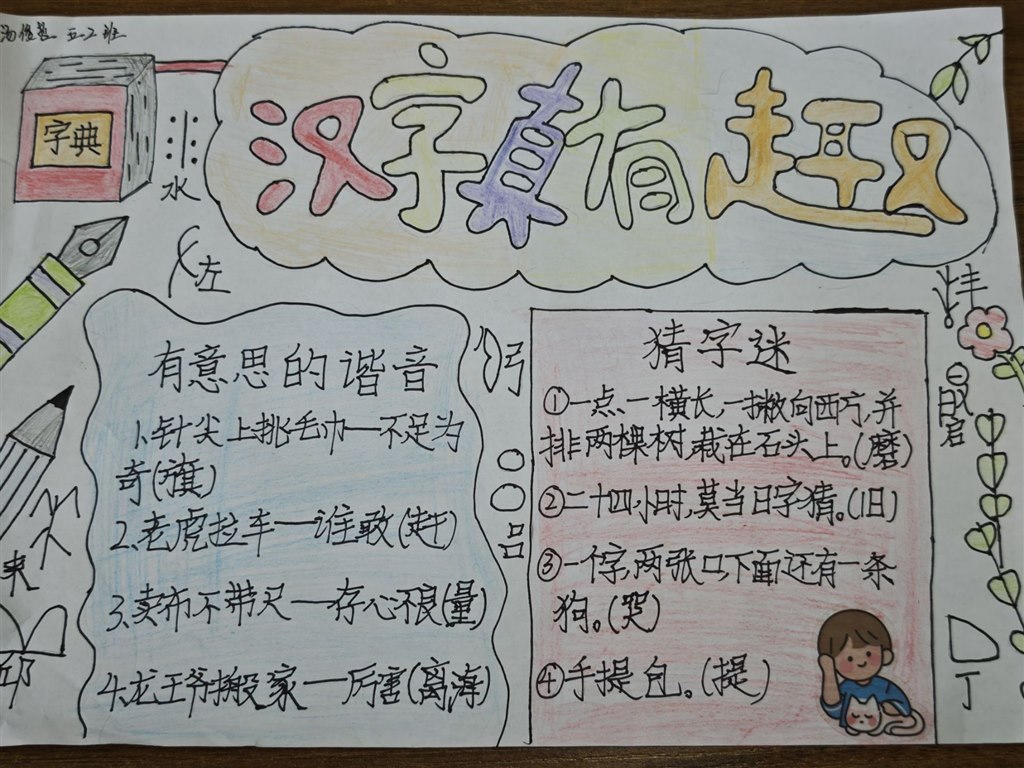 五.2班
汉字真有趣
字典
水
左
有意思的谐音
1、针尖上挑毛巾一不足为
奇(旗)
2、老虎拉车一谁敢(赶)
3、卖布不带尺一存心不良(量)
4、龙王爷搬家一厉害(离海)
猜字迷
①一点、一横长,一撇向西方,并
排两棵树,栽在石头上。(磨)
②二十四小时,莫当日字猜。(旧)
③一个字,两张口,下面还有一条
狗。(哭)
④手提包。(提)
来
丘
吕
丰
启
丁